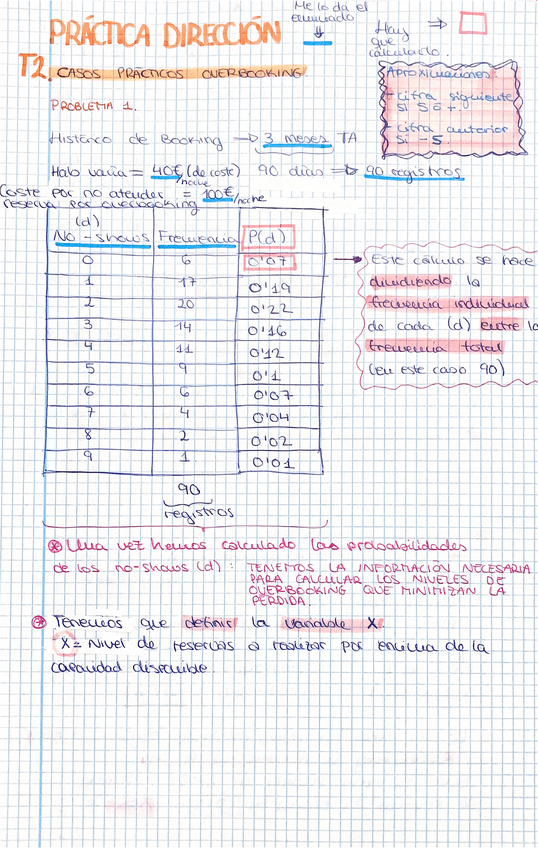 PRÁCTICA DIRECCIÓN
Me lo da el
enunciado
Hay
que
calcularlo.
T2. CASOS PRÁCTICOS OVERBOOKING
Aproximaciones:
- cifra siguiente
si 5 ó +.
- cifra anterior
si -5.
PROBLEMA 1.
Histórico de Booking → 3 meses TA
Hab vacía = 40€/noche (de coste) 90 días → 90 registros
Coste por no atender = 100€/noche
reserva por overbooking
(d)
No-shows Frecuencia P(d)
0 6 0'07
1 17 0'19
2 20 0'22
3 14 0'16
4 11 0'12
5 9 0'1
6 6 0'07
7 4 0'04
8 2 0'02
9 1 0'01
90
registros
Este cálculo se hace
dividiendo la
frecuencia individual
de cada (d) entre la
frecuencia total
(en este caso 90)
* Una vez hemos calculado las probabilidades
de los no-shows (d): TENEMOS LA INFORMACIÓN NECESARIA
PARA CALCULAR LOS NIVELES DE
OVERBOOKING QUE MINIMIZAN LA
PÉRDIDA.
* Tenemos que definir la variable X.
X = Nivel de reservas a realizar por encima de la
capacidad disponible.